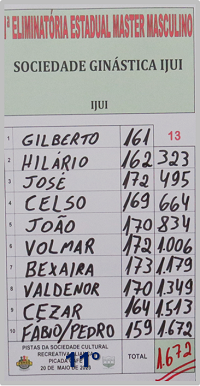 1ª ELIMINATÓRIA ESTADUAL MASTER MASCULINO
SOCIEDADE GINÁSTICA IJUI
IJUI
1 GILBERTO 161 13
2 HILÁRIO 162 323
3 JOSÉ 172 495
4 CELSO 169 664
5 JOÃO 170 834
6 VOLMAR 172 1.006
7 BEXAIRA 173 1.179
8 VALDENOR 170 1.349
9 CEZAR 164 1.513
10 FÁBIO/PEDRO 159 1.672
PISTAS DA SOCIEDADE CULTURAL
RECREATIVA
PICADA
20 DE MAIO DE
11º
TOTAL 1.672